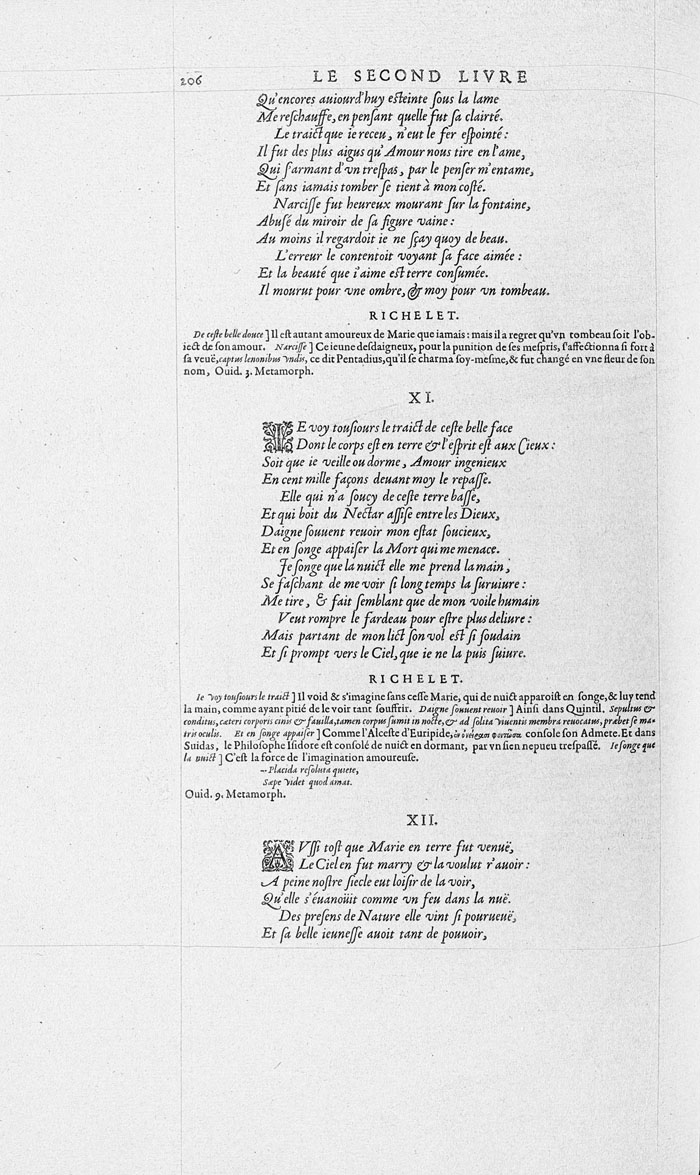 206 LE SECOND LIVRE
Qu'encores auiourd'huy esteinte sous la lame
Me reschauffe, en pensant quelle fut sa clairté.
Le traict que ie receu, n'eut le fer espointé :
Il fut des plus aigus qu'Amour nous tire en l'ame,
Qui s'armant d'vn trespas, par le penser m'entame,
Et sans iamais tomber se tient à mon costé.
Narcisse fut heureux mourant sur la fontaine,
Abusé du miroir de sa figure vaine :
Au moins il regardoit ie ne sçay quoy de beau.
L'erreur le contentoit voyant sa face aimée :
Et la beauté que i'aime est terre consumée.
Il mourut pour vne ombre, & moy pour vn tombeau.
RICHELET.
De ceste belle douce ] Il est autant amoureux de Marie que iamais : mais il a regret qu'vn tombeau soit l'ob-
iect de son amour. Narcisse ] Ce ieune desdaigneux, pour la punition de ses mespris, s'affectionna si fort à
sa veuë, captus lenonibus vndis, ce dit Pentadius, qu'il se charma soy-mesme, & fut changé en vne fleur de son
nom, Ouid. 3. Metamorph.
XI.
IE voy tousiours le traict de ceste belle face
Dont le corps est en terre & l'esprit est aux Cieux :
Soit que ie veille ou dorme, Amour ingenieux
En cent mille façons deuant moy le repasse.
Elle qui n'a soucy de ceste terre basse,
Et qui boit du Nectar assise entre les Dieux,
Daigne souuent reuoir mon estat soucieux,
Et en songe appaiser la Mort qui me menace.
Je songe que la nuict elle me prend la main,
Se faschant de me voir si long temps la suruiure :
Me tire, & fait semblant que de mon voile humain
Veut rompre le fardeau pour estre plus deliure :
Mais partant de mon lict son vol est si soudain
Et si prompt vers le Ciel, que ie ne la puis suiure.
RICHELET.
Ie voy tousiours le traict ] Il void & s'imagine sans cesse Marie, qui de nuict apparoist en songe, & luy tend
la main, comme ayant pitié de le voir tant souffrir. Daigne souuent reuoir ] Ainsi dans Quintil. Sepultus &
conditus, cæteri corporis cinis & fauilla, tamen corpus sumit in nocte, & ad solita viuentis membra reuocatus, præbet se ma-
tris oculis. Et en songe appaiser ] Comme l'Alceste d'Euripide, console son Admete. Et dans
Suidas, le Philosophe Isidore est consolé de nuict en dormant, par vn sien nepueu trespassé. Ie songe que
la nuict ] C'est la force de l'imagination amoureuse.
--Placida resoluta quiete,
Sæpe videt quod amat.
Ouid. 9. Metamorph.
XII.
AVssi tost que Marie en terre fut venuë,
Le Ciel en fut marry & la voulut r'auoir :
A peine nostre siecle eut loisir de la voir,
Qu'elle s'éuanoüit comme vn feu dans la nuë.
Des presens de Nature elle vint si pourueuë,
Et sa belle ieunesse auoit tant de pouuoir,